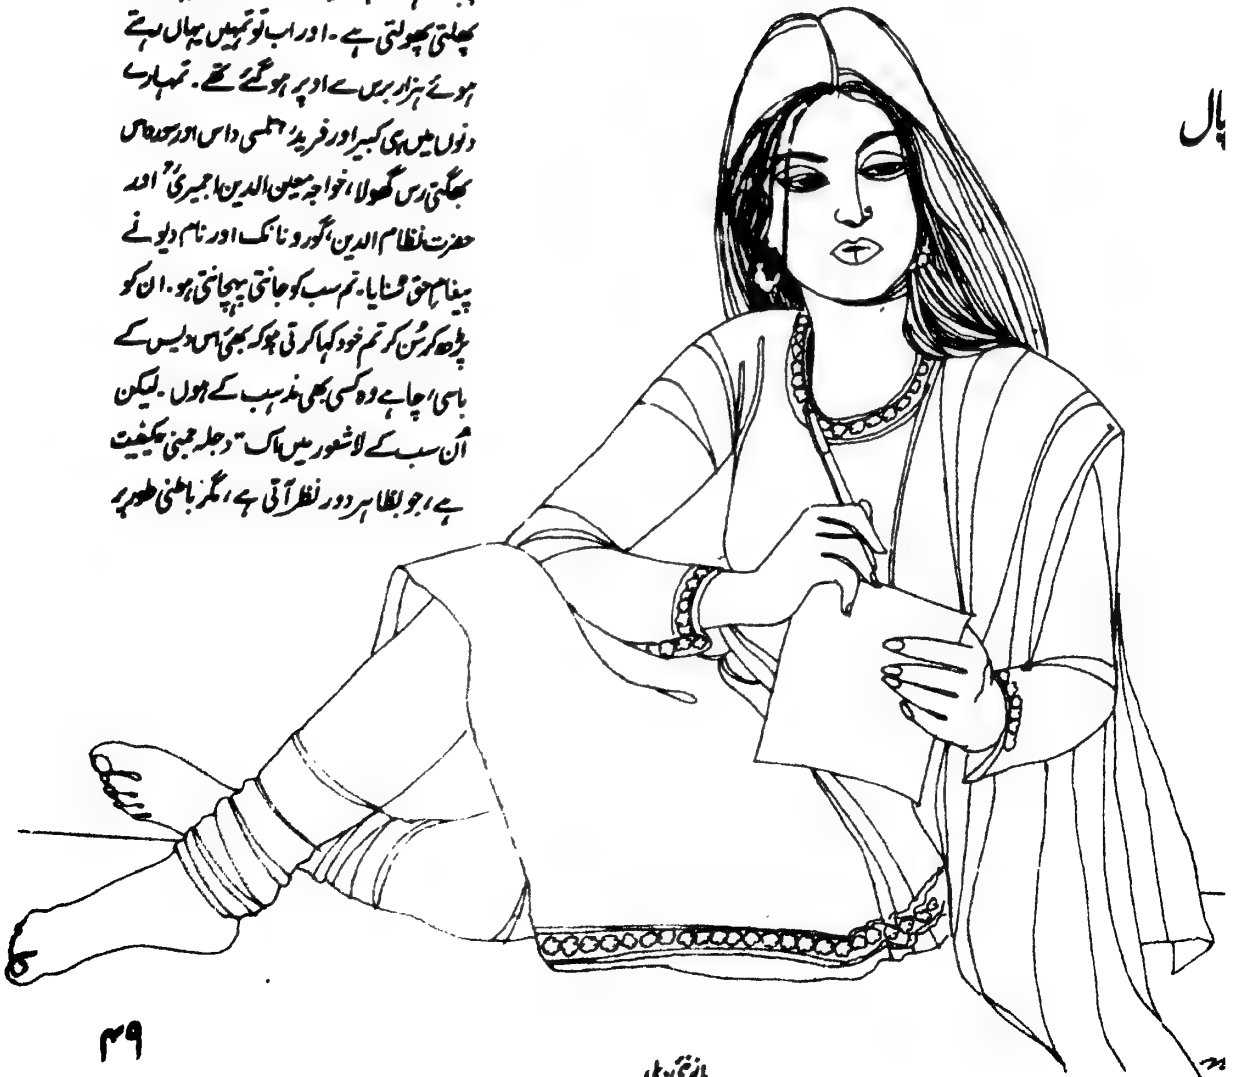 پھلتی پھولتی ہے۔ اور اب تو تمہیں یہاں رہتے
ہوئے ہزار برس سے اوپر ہو گئے تھے۔ تمہارے
دنوں میں ہی کبیر اور فرید، تلسی داس اور سورداس
بھگتی رس گھولا، خواجہ معین الدین اجمیریؒ اور
حضرت نظام الدین، گورو نانک اور نام دیو نے
پیغامِ حق سنایا۔ تم سب کو جانتی پہچانتی ہو۔ ان کو
پڑھ کر سُن کر تم خود کہا کرتی ہو کہ بھئی اس دیس کے
باسی، چاہے وہ کسی بھی مذہب کے ہوں۔ لیکن
اُن سب کے لاشعور میں اک "دجلہ جمنی" کیفیت
ہے، جو بظاہر دور نظر آتی ہے، مگر باطنی طور پر
پال
۴۹